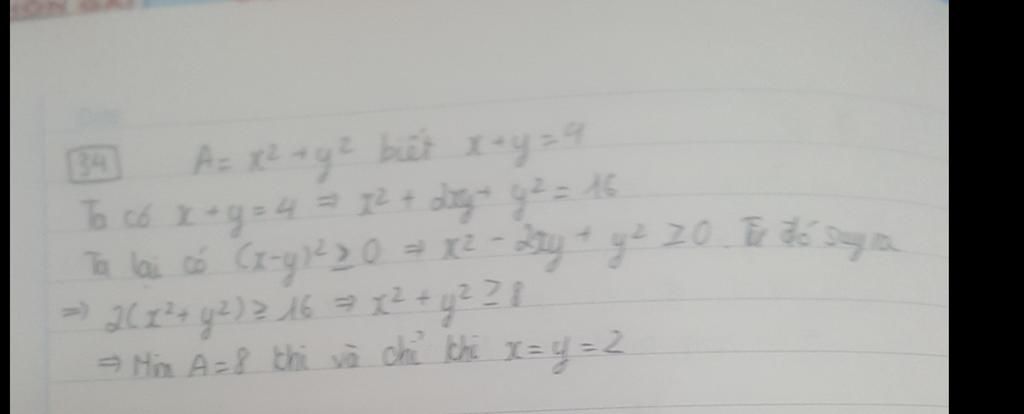 34 A = x² + y² biết x + y = 4
Ta có x + y = 4 ⇒ x² + 2xy + y² = 16
Ta lại có (x-y)² ≥ 0 ⇒ x² - 2xy + y² ≥ 0. Từ đó suy ra
⇒ 2(x² + y²) ≥ 16 ⇒ x² + y² ≥ 8
⇒ Min A = 8 khi và chỉ khi x = y = 2